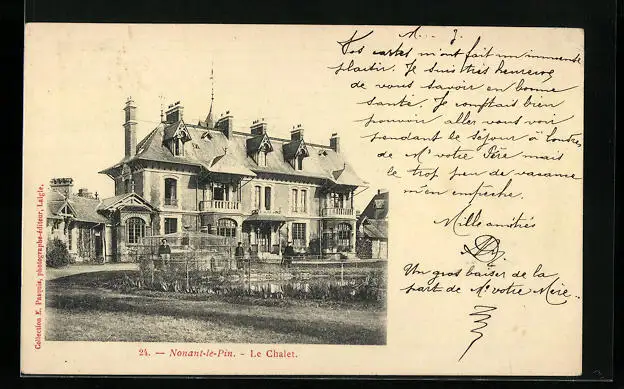 M... J.
Vos cartes m'ont fait un immense
plaisir. Je suis très heureuse
de vous savoir en bonne
santé. Je comptais bien
pouvoir aller vous voir
pendant le séjour à Londres
de Mr votre Père mais
le trop peu de vacance
m'en empêche.
Mille amitiés
Un gros baiser de la
part de Me votre Mère.
Collection E. Pasquis, photographe-éditeur, Laigle.
24. — Nonant-le-Pin. - Le Chalet.